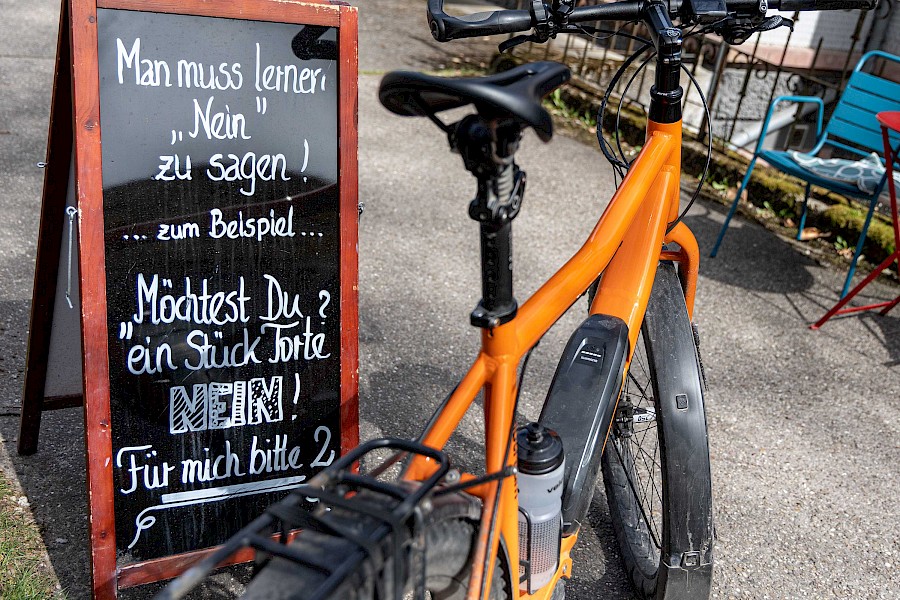 Man muss lernen
„Nein"
zu sagen!
... zum Beispiel...
Möchtest Du ?
"ein Stück Torte
NEIN!
Für mich bitte 2